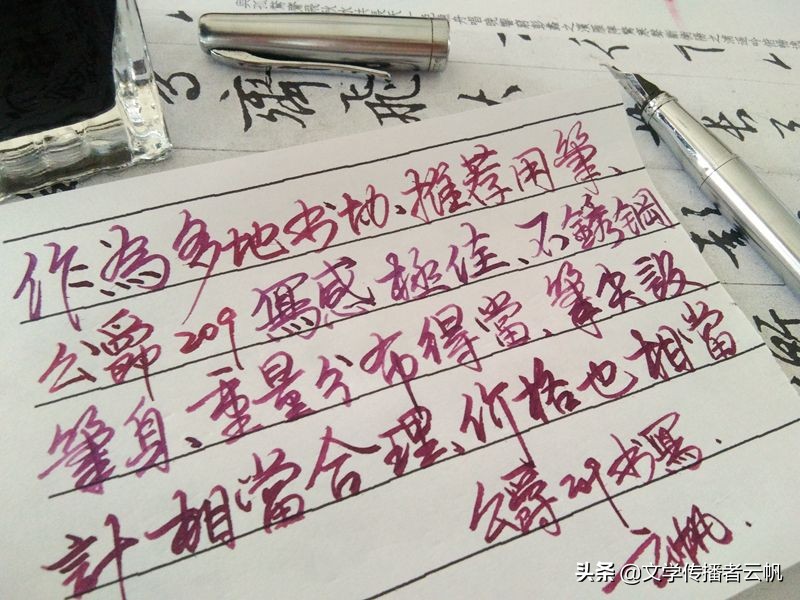 作為多地书协、推荐用筆、
公爵209 寫感極佳、不銹鋼
筆身、重量分布得當、筆尖設
計相當合理、价格也相當
公爵209书寫.
云帆.
头条 @文学传播者云帆